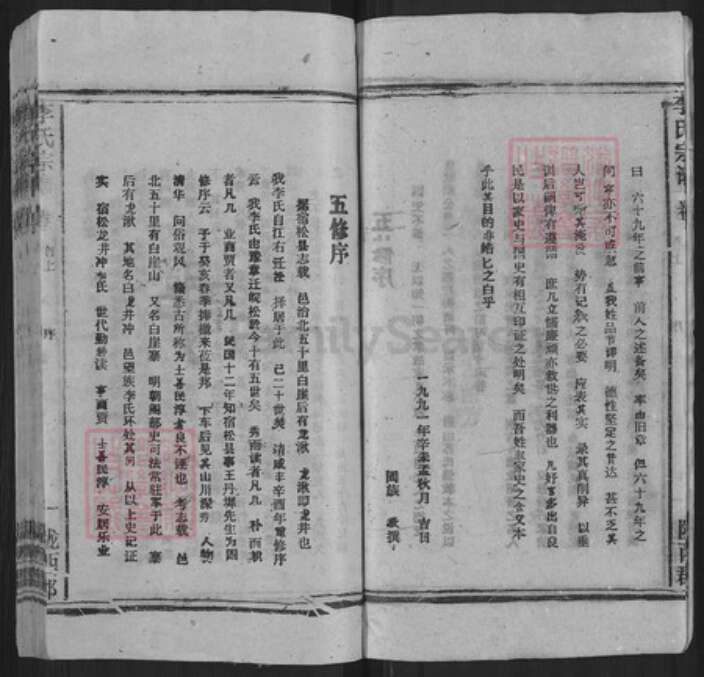 李氏宗谱 卷
曰 六十九年之前事 前人之述备矣 率由旧章 但六十九年之
间 事亦不可疏忽 且我姓品节谆明 德性坚定之贤达 甚不乏其
人岂可 其淹没 势有记 之必要 应表其实 录其真削异 以垂
训后嗣俾有遵循 庶几立懦廉顽亦救世之利器也 凡好言多出自良
民是以家史与国史有相互印证之处明矣 而吾姓 家史之含文本
乎此其目的非绝匕之白乎
一九九一年辛未孟秋月 吉日
阖族 敬撰
五修序
据宿松县志载 邑治北五十里白崖后有龙湫 龙湫即龙井也
我李氏自江右迁松 择居于此 已二十世矣 清咸丰辛酉年重修序
云 我李氏由豫章迁皖松於今十有五世矣 秀而读者凡几 朴而耕
者凡几 业商贾者又凡几 民国十二年知宿松县事王丹墀先生为四
修序云 予于癸亥春季捧檄来莅是邦 下车后见其山川深秀 人物
清华 问俗观风 悉古所称为士善民淳 良不诬也 考志载 邑
北五十里有白崖山 又名白崖寨 明朝阁部史可法常驻军于此 寨
后有龙湫 其地名曰龙井冲 邑望族李氏环处其间 从以上史记证
实 宿松龙井冲李氏 世代勤耕读 事商贾 士善民淳 安居乐业
李氏宗
上
序
一
陇西郡